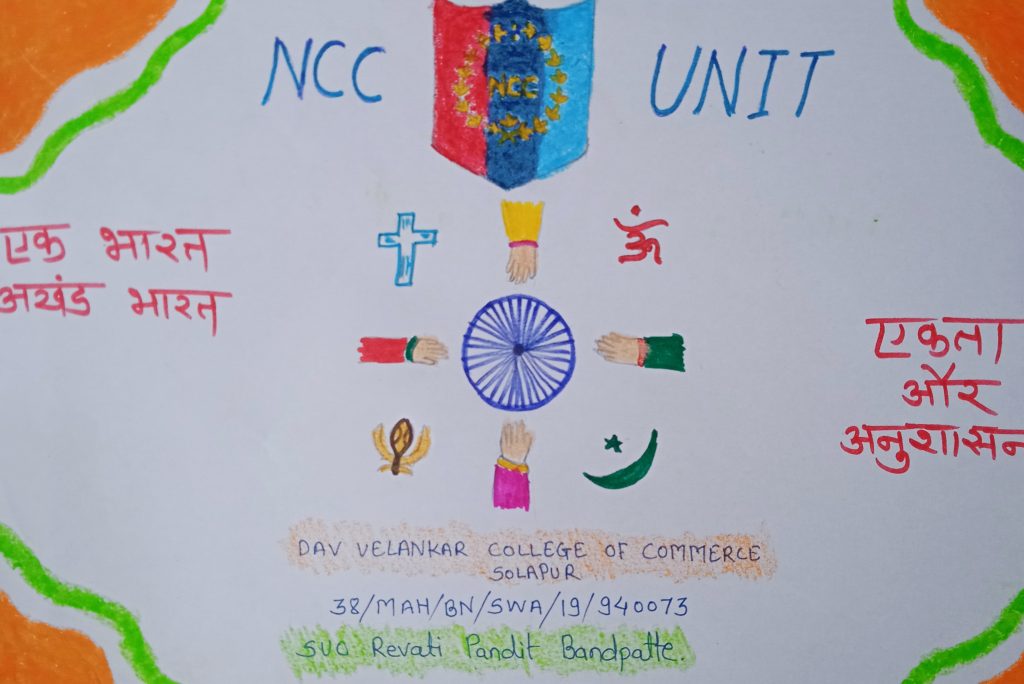 NCC UNIT
NCC
एक भारत
अखंड भारत
ॐ
एकता
और
अनुशासन
DAV VELANKAR COLLEGE OF COMMERCE
SOLAPUR
38/MAH/BN/SWA/19/940073
SUO Revati Pandit Bandpatte.